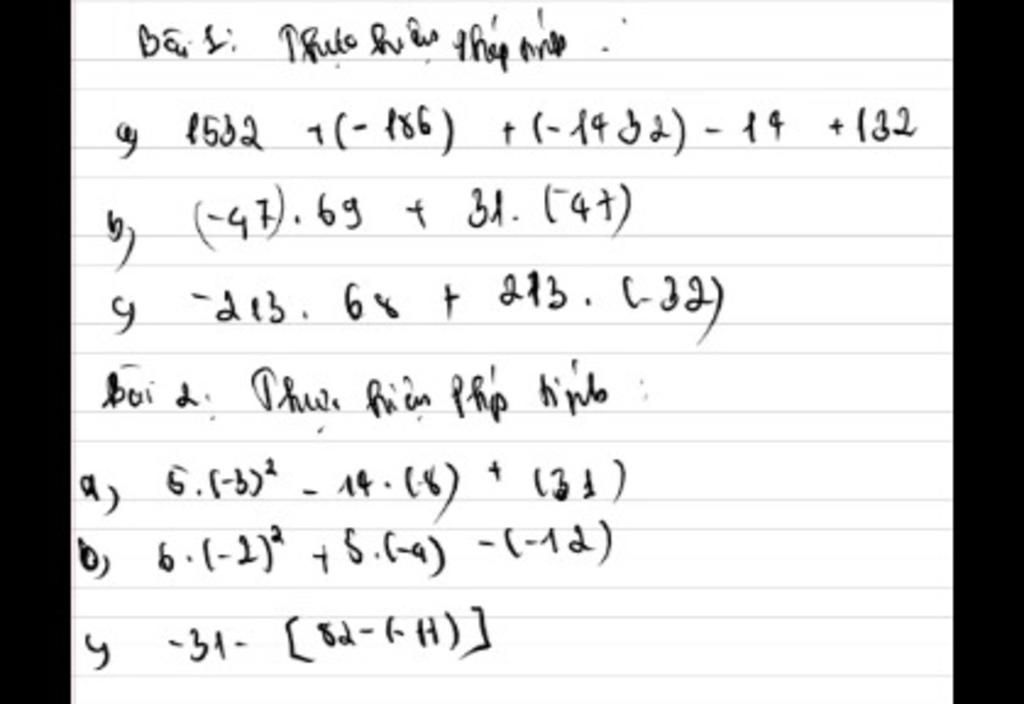 Bài 1: Thực hiện phép tính :
a) 1532 + (-186) + (-1432) - 14 + 132
b) (-47). 69 + 31. (-47)
c) -213. 68 + 213. (-32)
Bài 2: Thực hiện phép tính :
a) 5.(-3)² - 14.(-8) + (31)
b) 6.(-2)² + 5.(-4) - (-12)
c) -31- [82-(-11)]